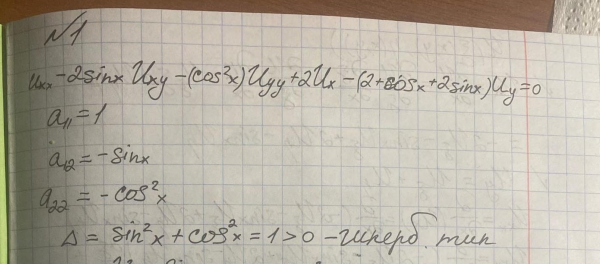 №1
Uxx - 2sinx Uxy - (cos²x)Uyy + 2Ux - (2+cosx+2sinx)Uy = 0
a₁₁ = 1
a₁₂ = -sinx
a₂₂ = -cos²x
Δ = sin²x + cos²x = 1 > 0 - гиперб. тип